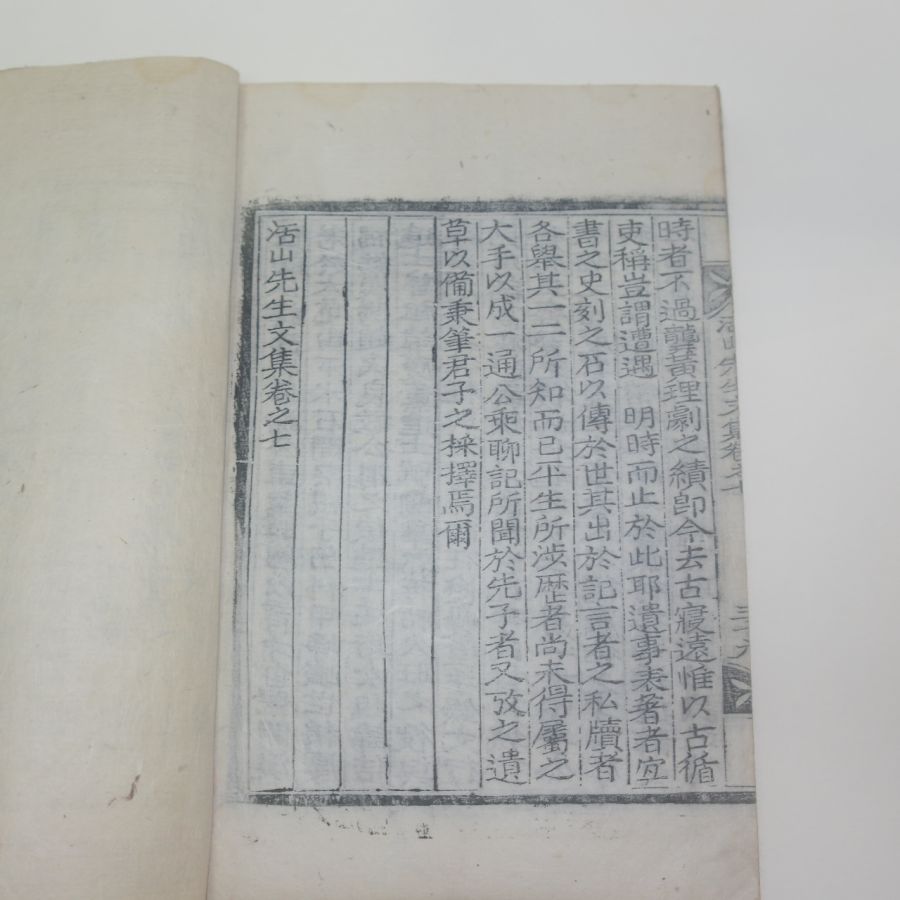 時者不過龔黃理劇之績卽今去古寢遠惟以古循
吏稱豈謂遭遇　明時而止於此耶遺事表著者宜
書之史刻之石以傳於世其出於記言者之私牘者
各擧其一二所知而已平生所涉歷者尚未得屬之
大手以成一通公乘聊記所聞於先子者又攷之遺
草以備秉筆君子之採擇焉爾
活山先生文集卷之七
活山先生文集卷之七